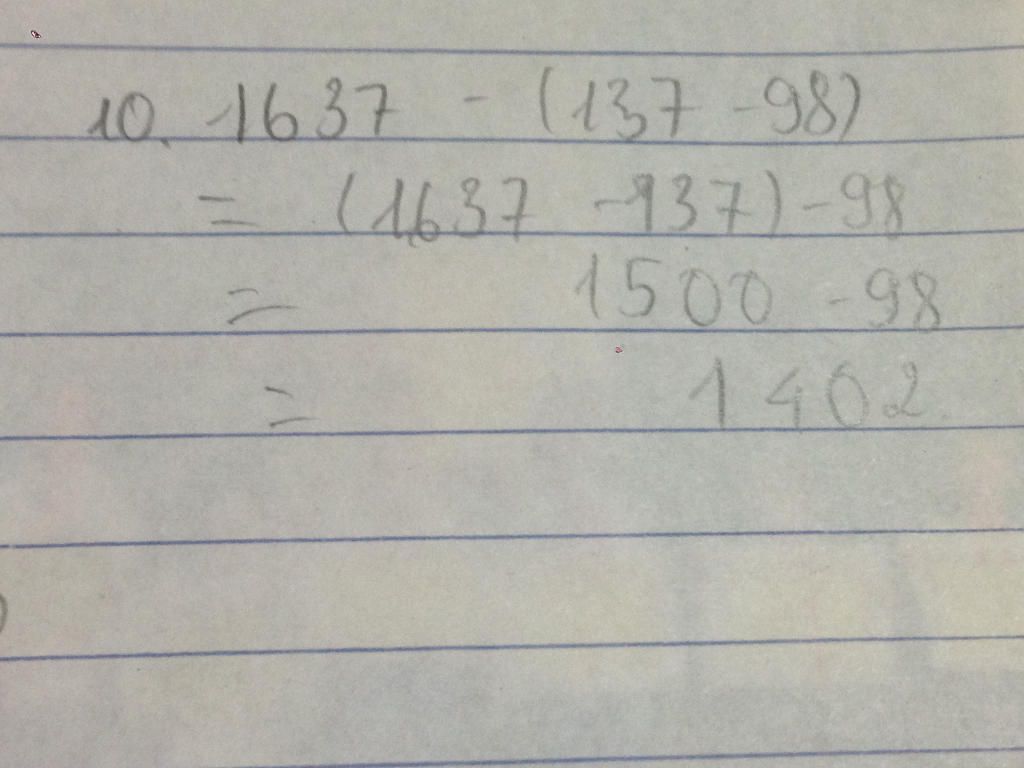 10. 1637 - (137 - 98)
= (1637 - 137) - 98
= 1500 - 98
= 1402